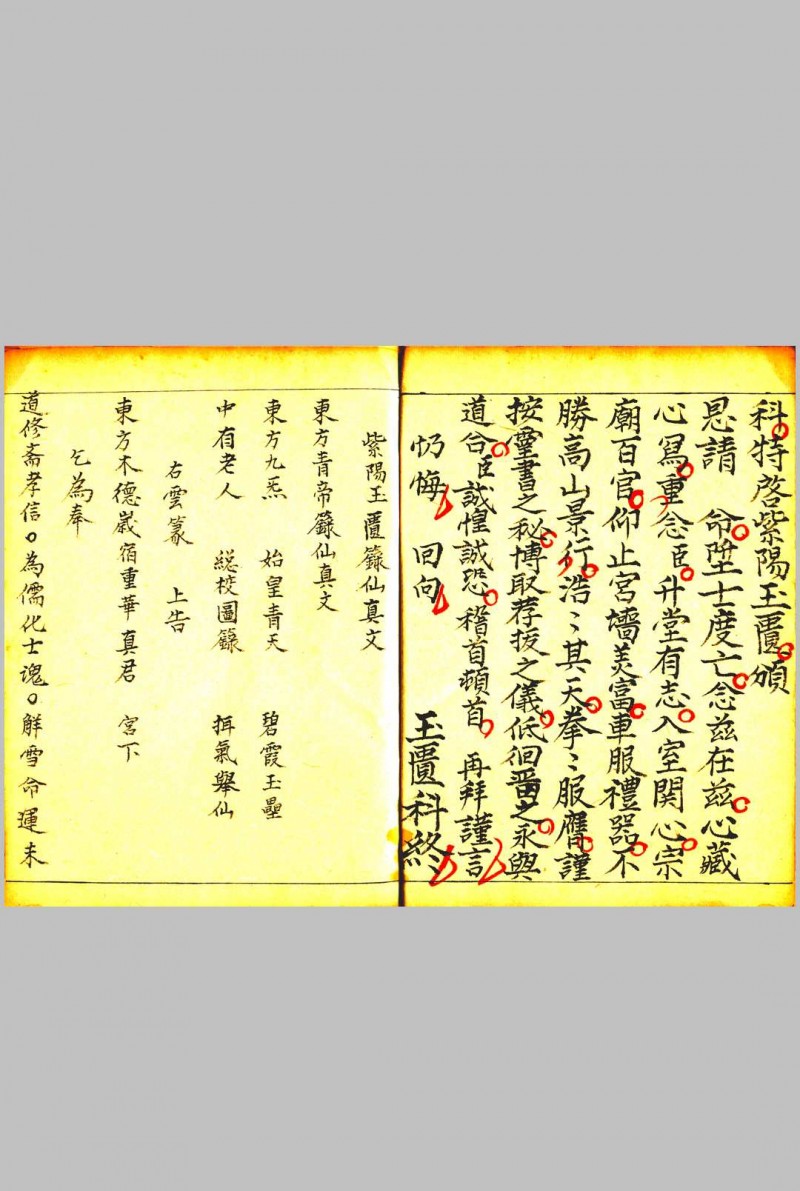 科特啓紫陽玉匱頒
恩請　命墮士度亡念茲在茲心藏
心寫重念臣升堂有志入室関心宗
廟百官仰止宮墻美富車服禮器不
勝高山景行浩〻其天拳〻服膺謹
按靈書之秘博取荐拔之儀低徊畱之永與
道合臣誠惶誠恐稽首頓首　再拜謹言
忏悔　回向　玉匱科終
紫陽玉匱籙仙真文
東方青帝籙仙真文
東方九炁　始皇青天　碧霞玉壘
中有老人　総校圖籙　挕氣舉仙
右雲篆　上告
東方木德歲宿重華真君　宮下
乞為奉
道修齋孝信〇為儒化士魂〇觧雪命運未